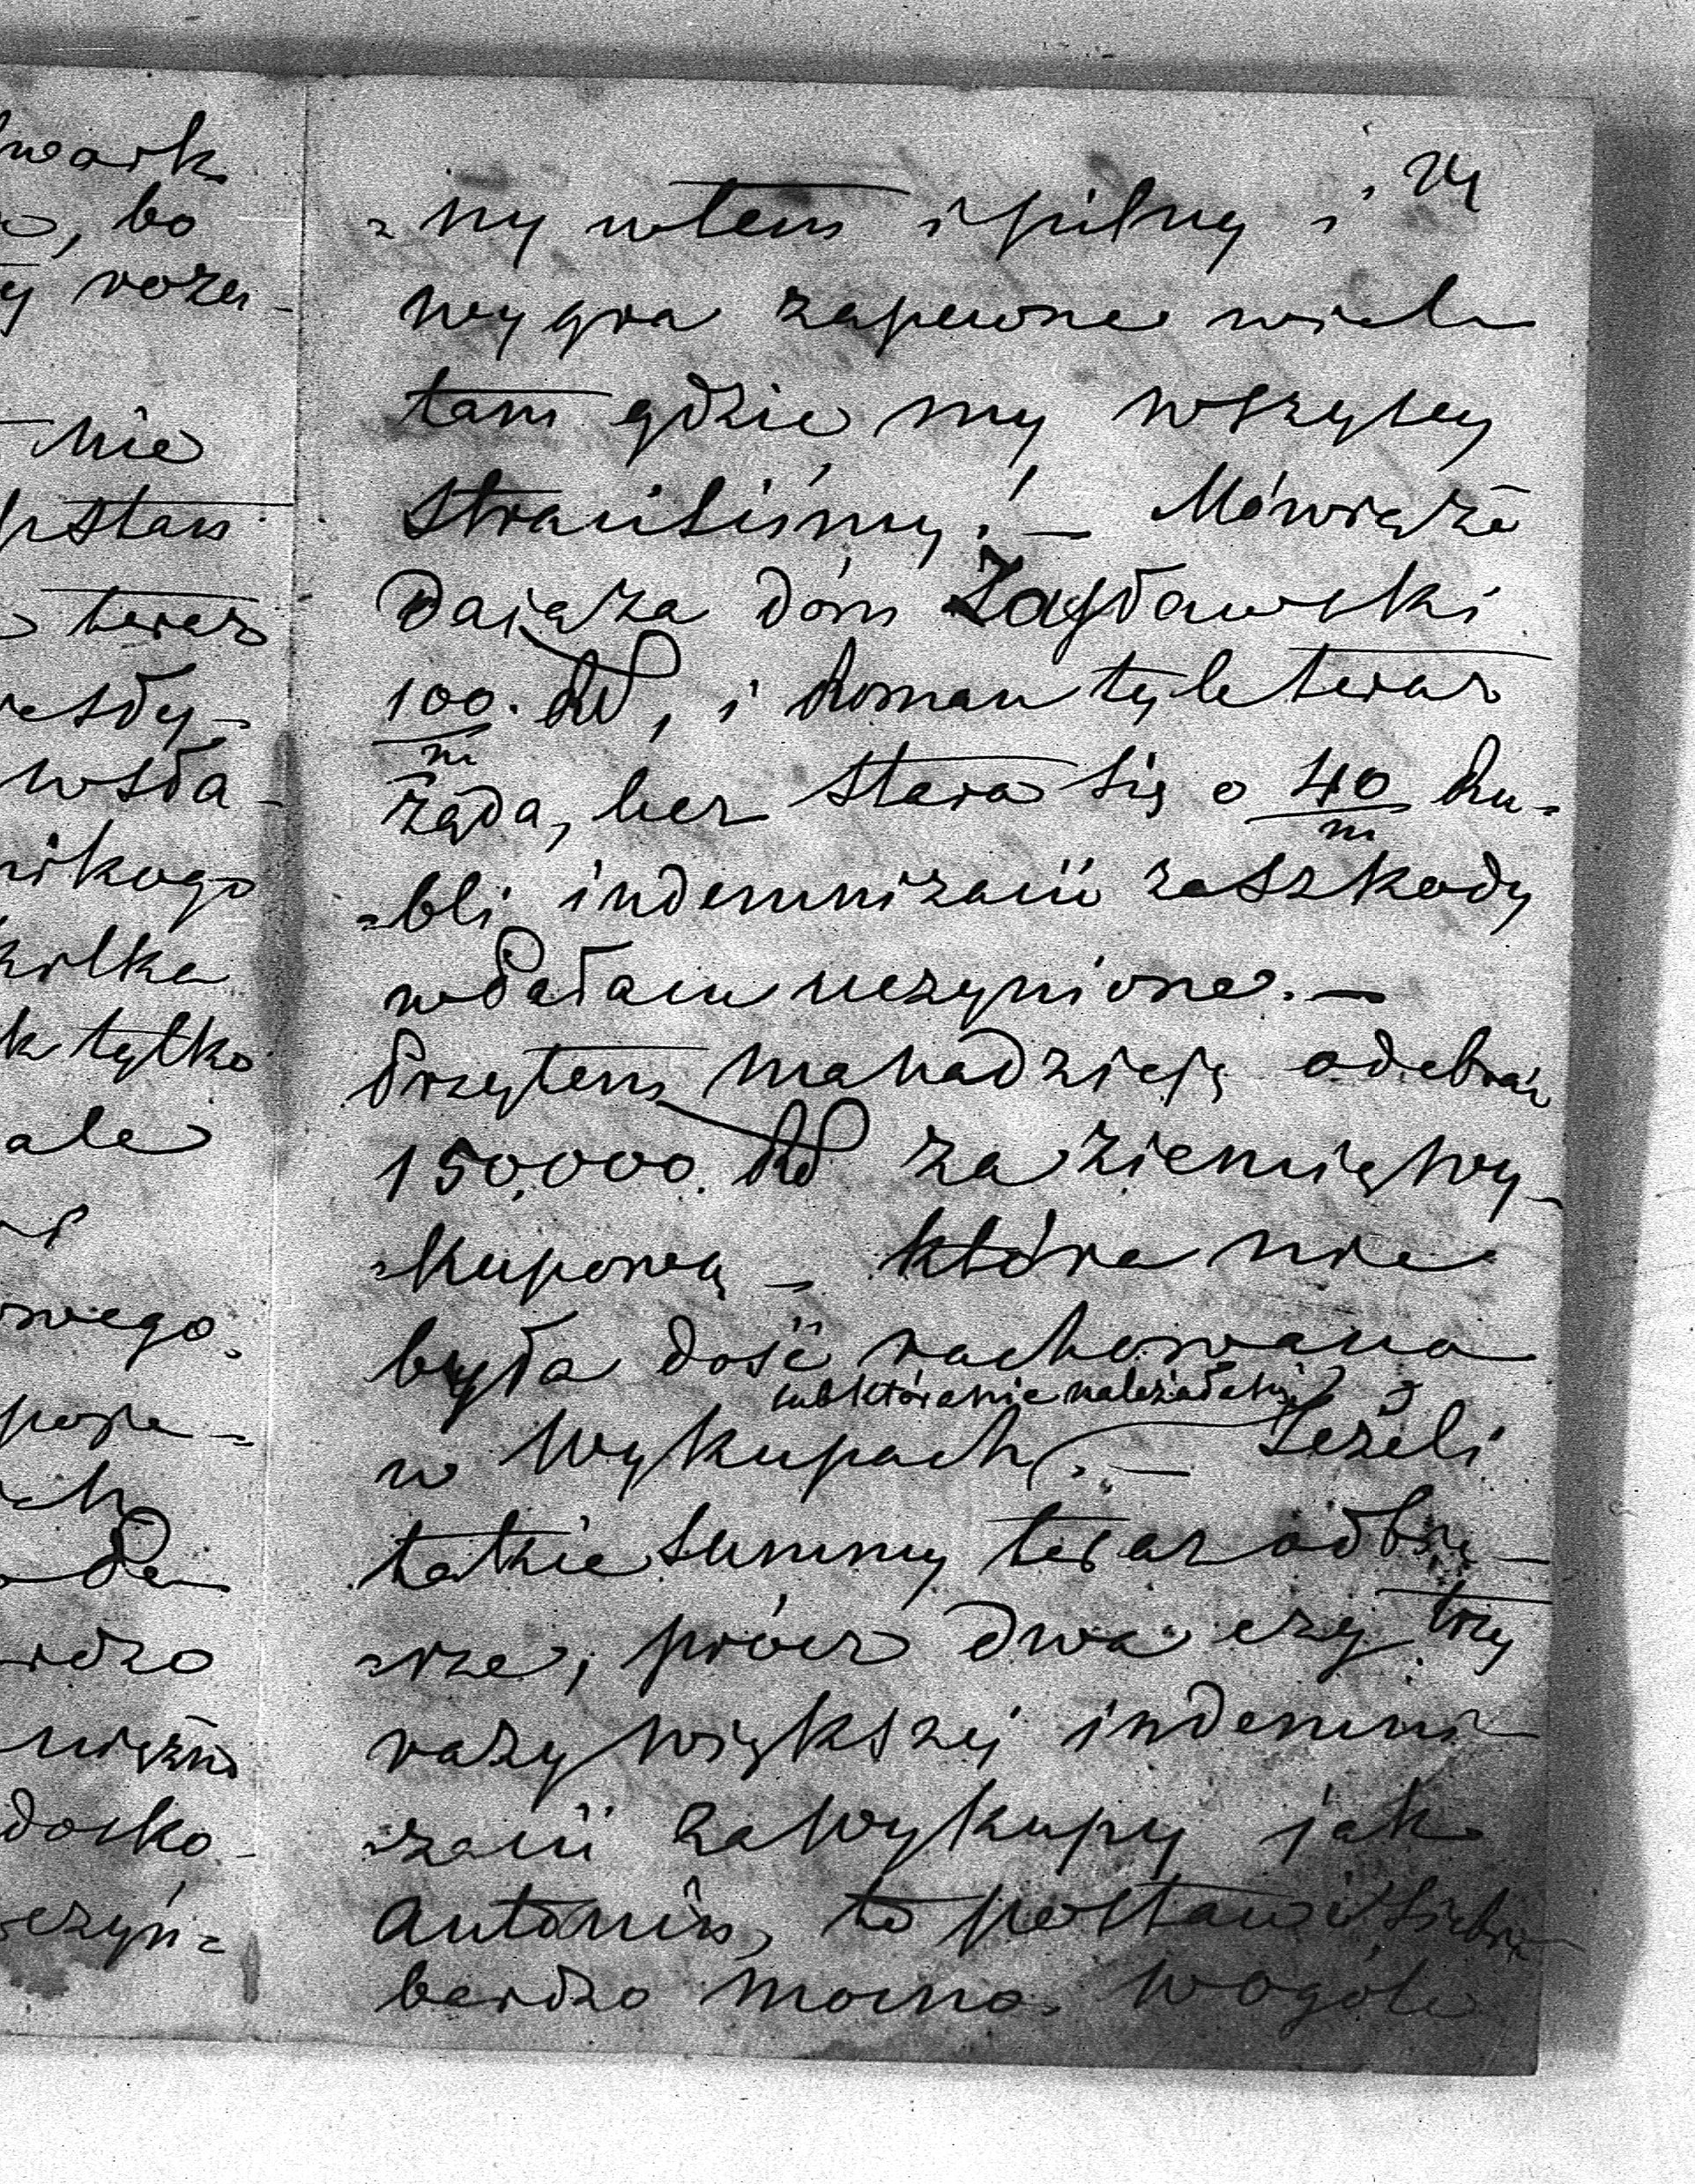 wark
, bo
y rozu-
nie
pstars
teraz
esdy-
wsła-
nikogo
kilka
k tylko
ale
owego
poje-
ch
da
rdzo
niężn
dosko-
czyń=
24
=ny wtem i pilny i
wygra zapewne wiele
tam gdzie my wszyscy
straciliśmy! – Mówią że
Dają za dóm Żagdawski
100/m. Rsł, i Roman tyle teraz
żąda, bez stara się o 40/m Ru=
=bli indemnizacii za szkody
w Pałacu uczynione. –
Przytem ma nadzieję odebrać
150,000. Rsł za ziemię wy-
=kupową – która nie
była dość rachowana
lub która nie należała
w wykupach. – Jeżeli
takie summy teraz odbie-
=rze, prócz dwa czy trzy
razy większej indemni-
=zacii za wykupy jak
Antonin, to postawi siebie
bardzo mocno. Wogóle